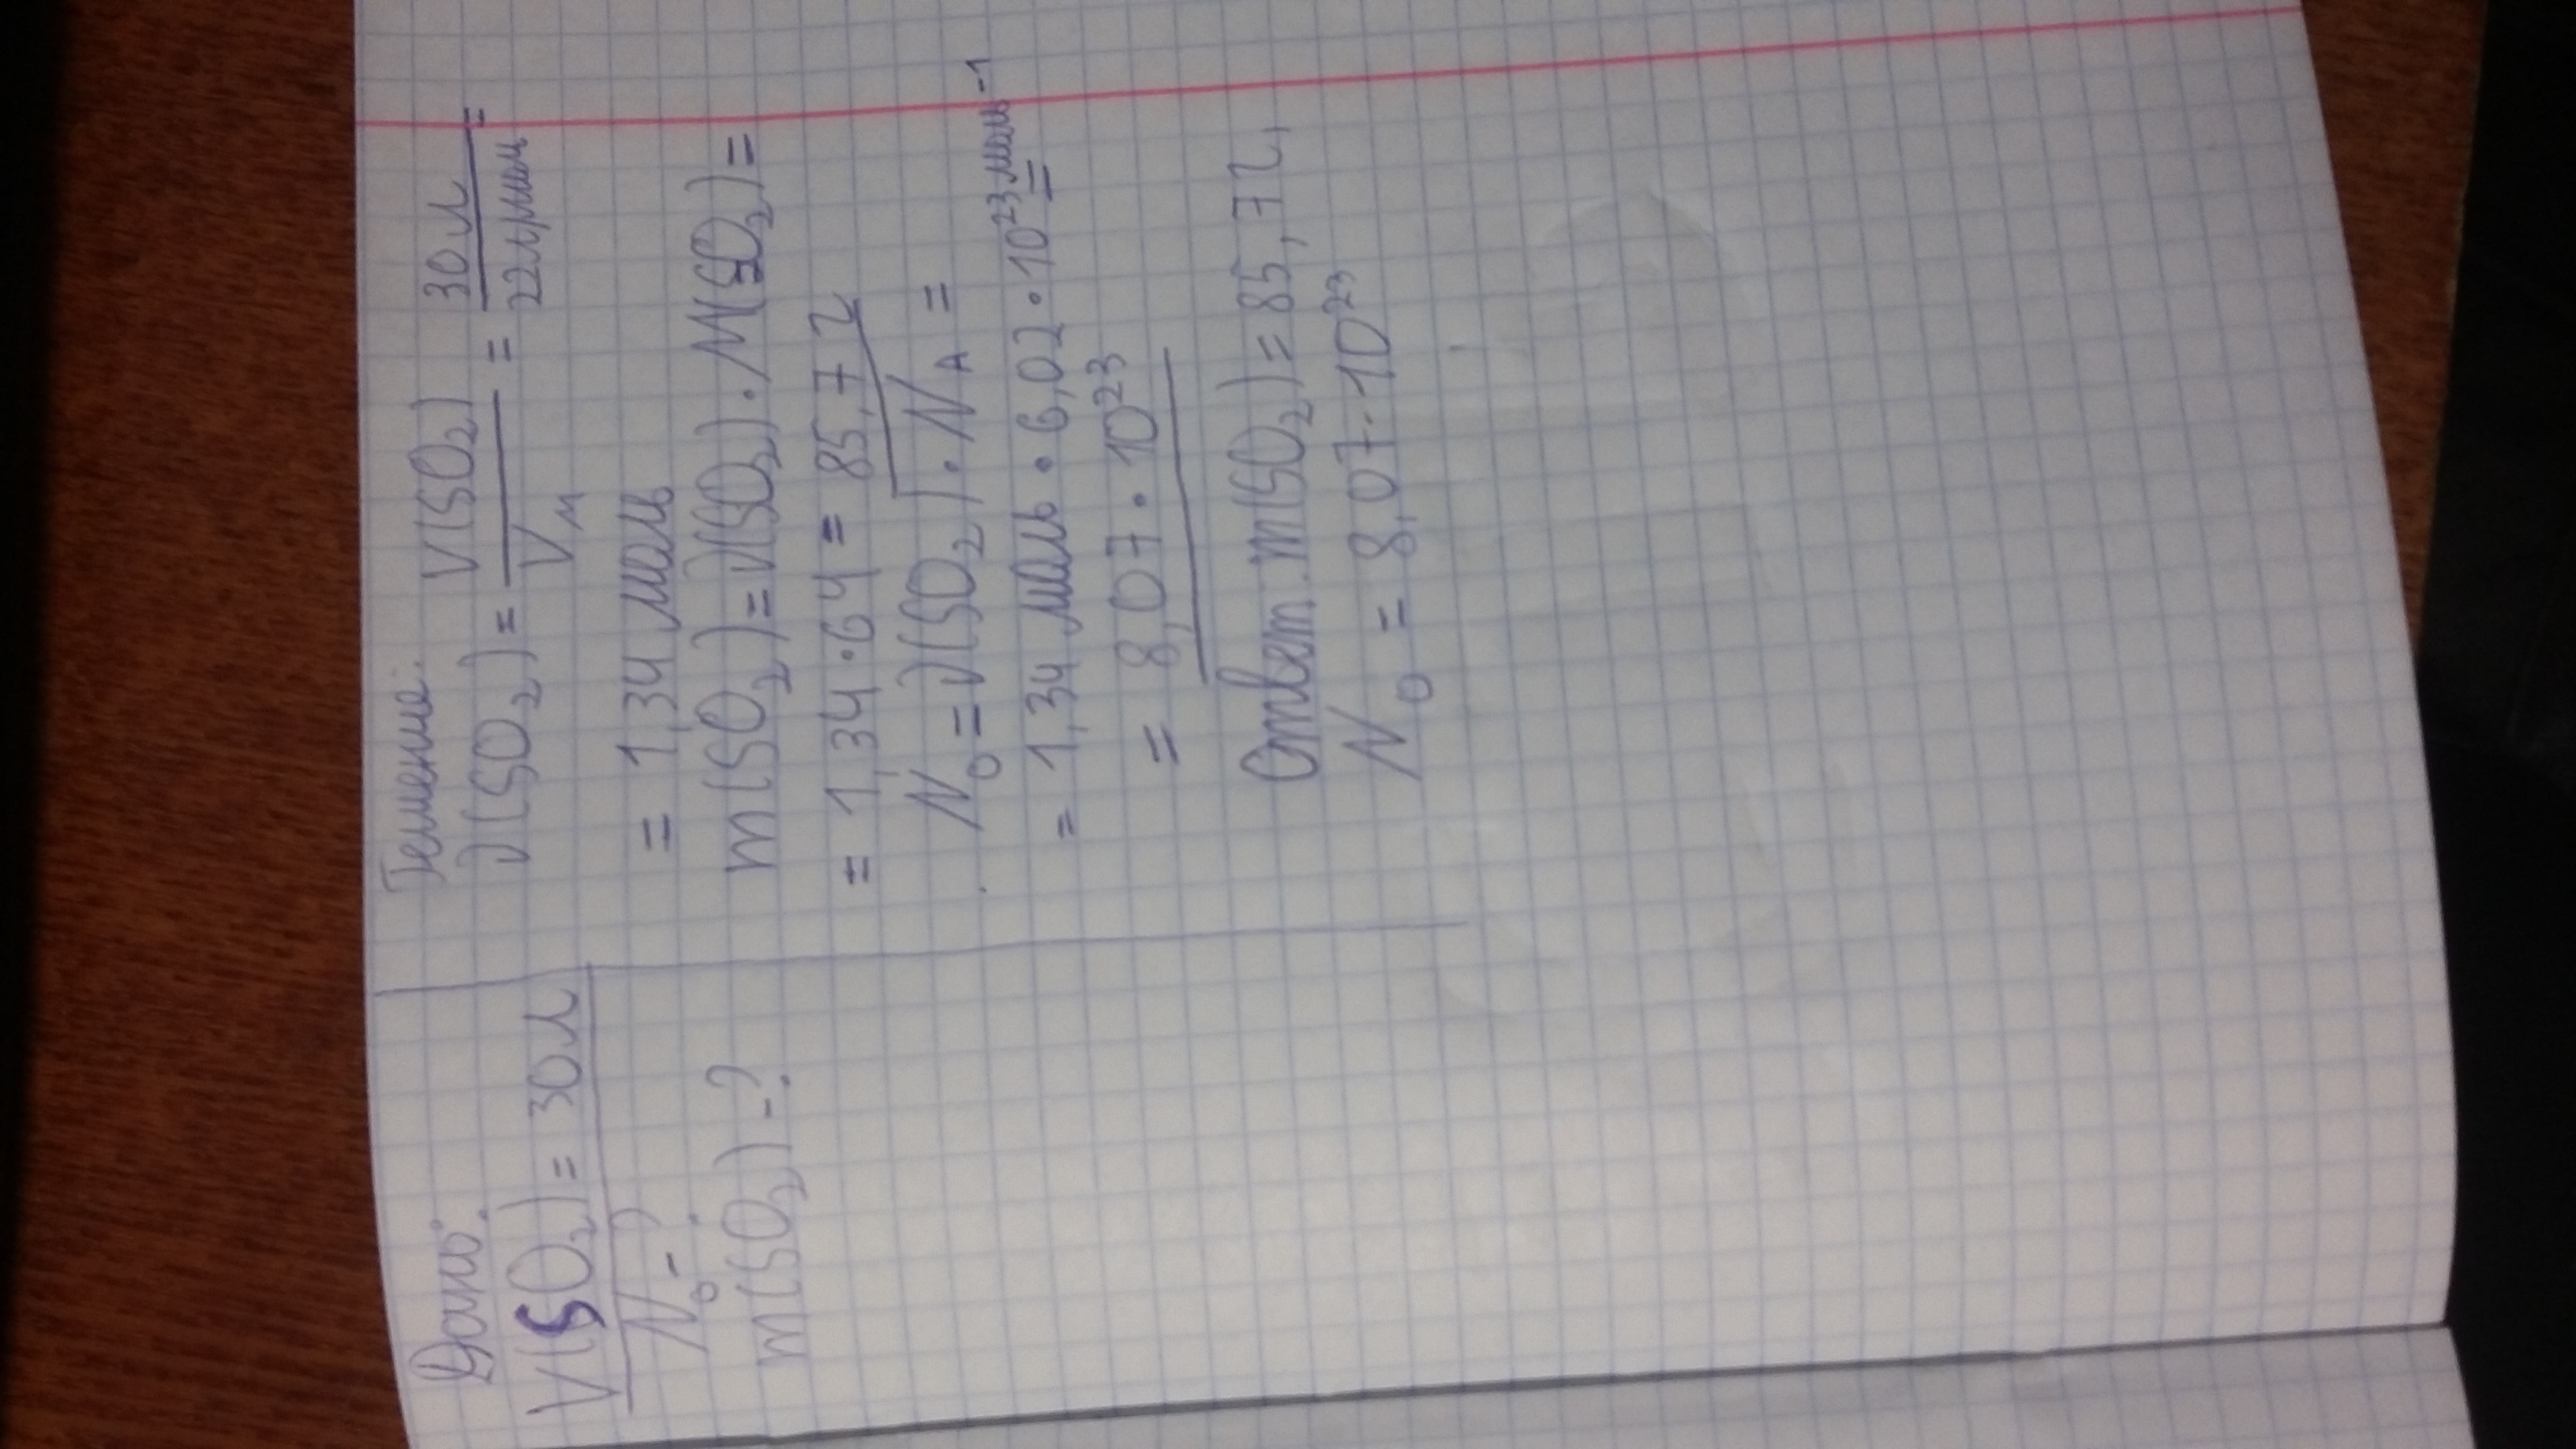 Дано:
V(SO₂) = 30 л
N₀ - ?
m(SO₂) - ?
Решение:
ν(SO₂) = V(SO₂) / Vм = 30 л / 22 л/моль =
= 1,34 моль
m(SO₂) = ν(SO₂) · M(SO₂) =
= 1,34 · 64 = 85,7 г
N₀ = ν(SO₂) · N_A =
= 1,34 моль · 6,02 · 10²³ моль⁻¹ =
= 8,07 · 10²³
Ответ: m(SO₂) = 85,7 г,
N₀ = 8,07 · 10²³